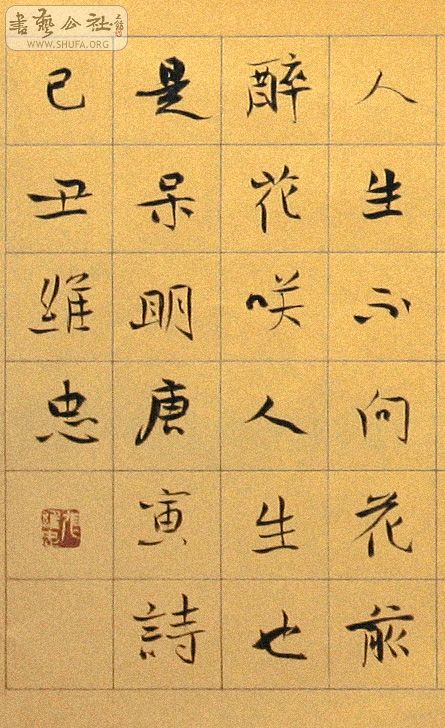 書藝公社
WWW.SHUFA.ORG
人生不向花前
醉花咲人生也
是呆明唐寅詩
己丑維忠